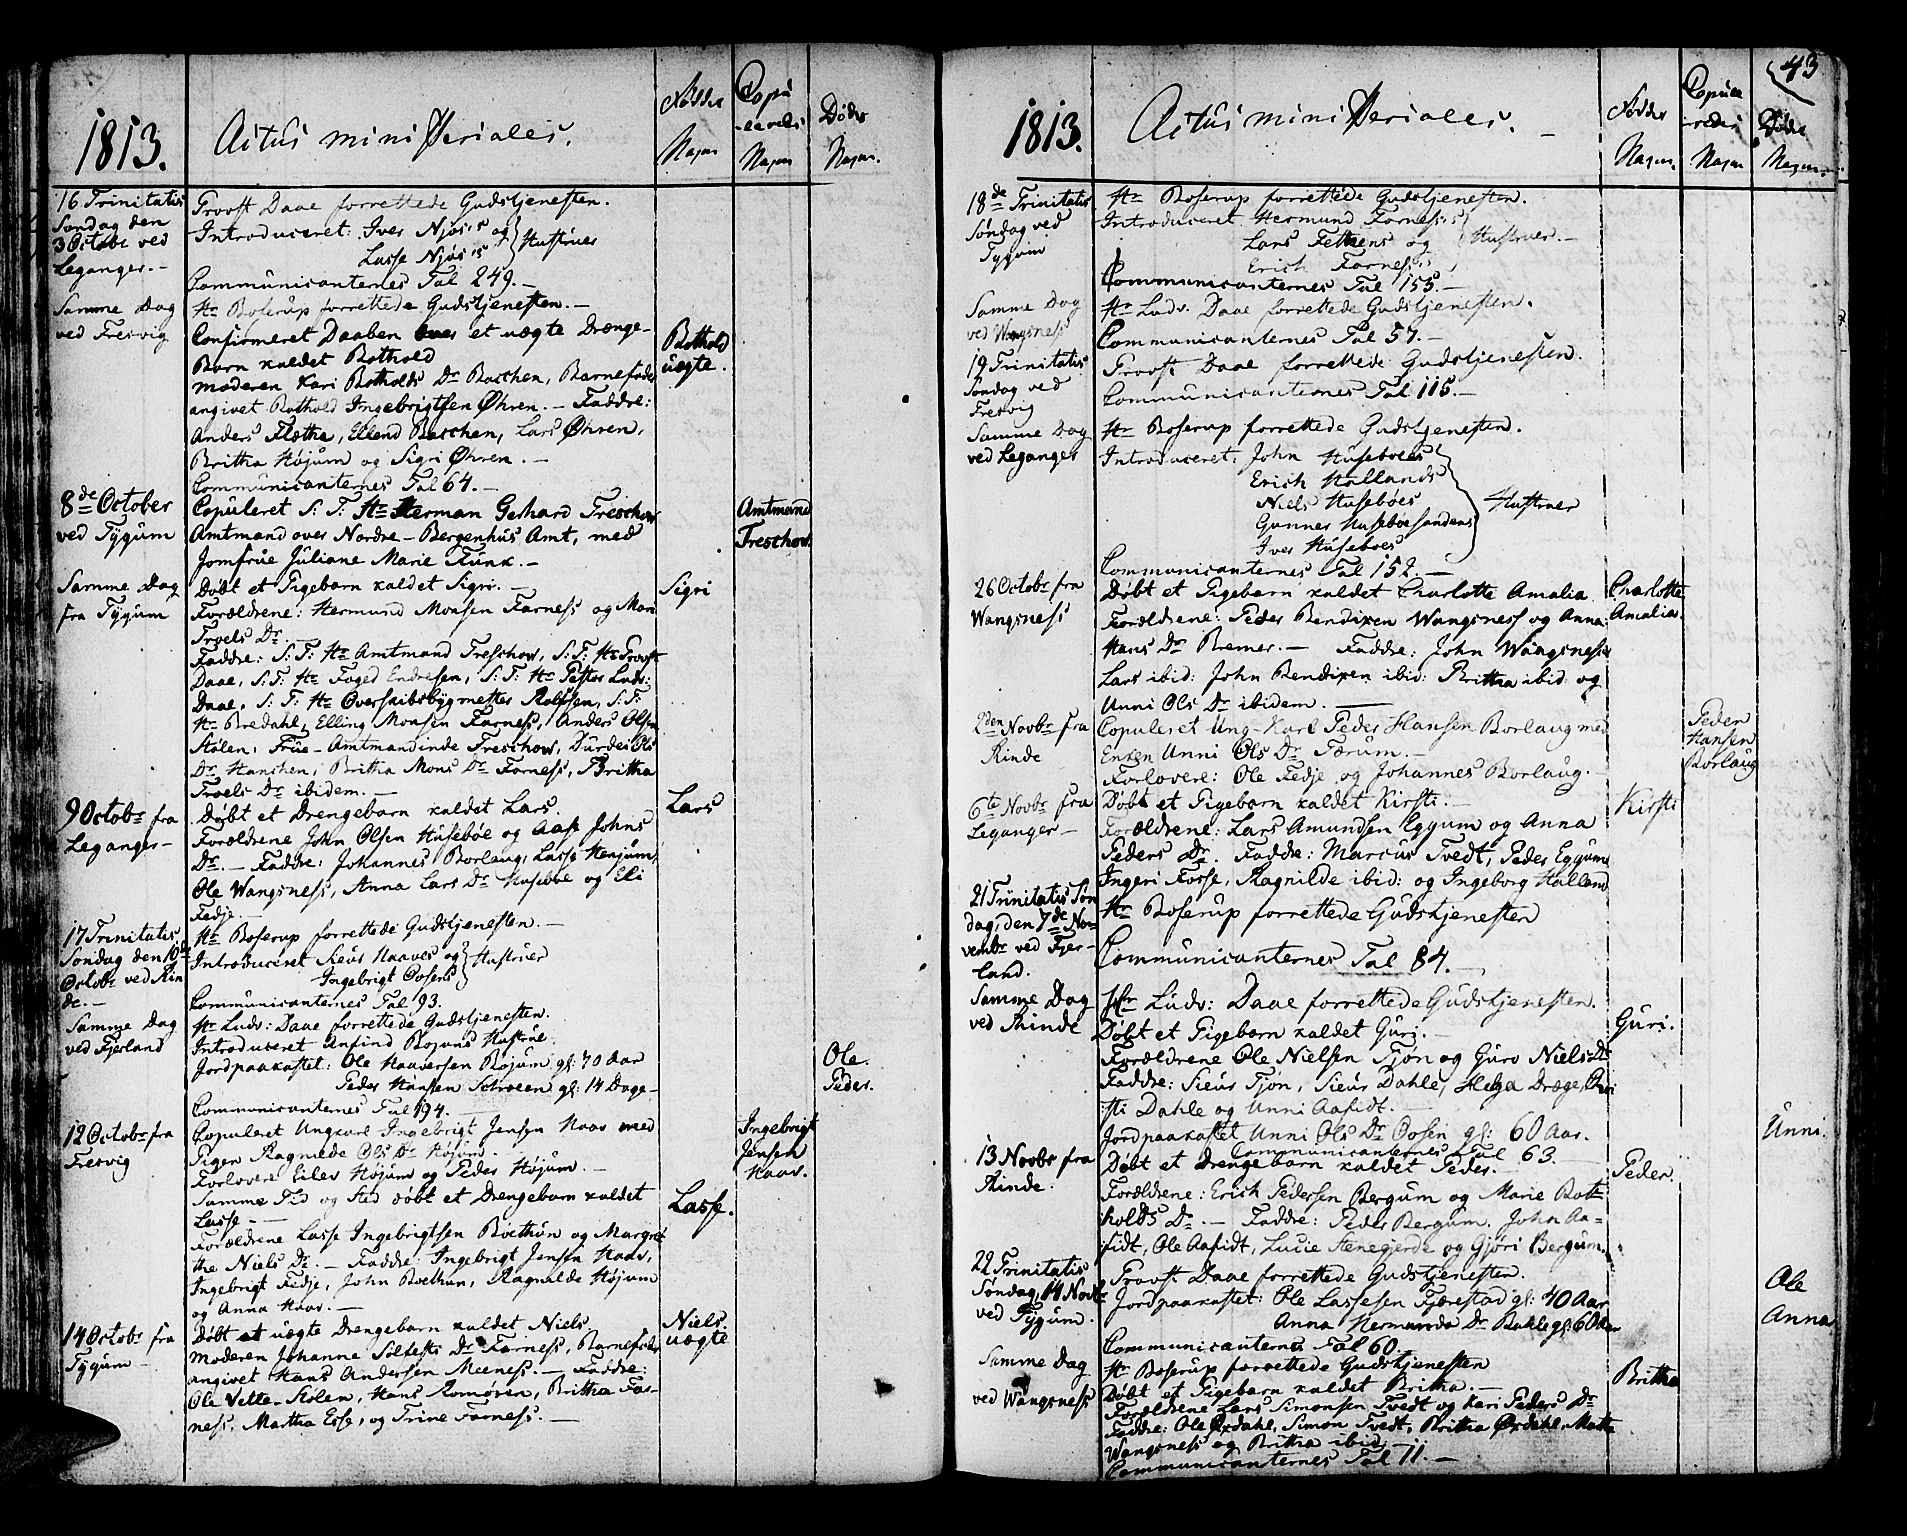 1813.
Actus ministeriales.
Fødde
Nafn
Copu
-lerede
Nafn
Døde
Nafn.
16 Trinitatis
Søndag den
3 Octobr ved
Leganger. -
Provst Daae forrettede Gudstjenesten.
Introduceret: Iver Njøs's og
Lasse Njøs's
Hustruer
Communicanternes Tal 249. -
Samme Dag
ved Fresvig
Hr Boserup forrettede Gudstjenesten. -
Confirmeret Daaben over et uægte Drænge-
Barn kaldet Bothold
Moderen Kari Botholds Dr Barchen, Barnefader
angivet Bothold Ingebrigtsen Øhren. - Faddre:
Anders Fløthe, Ellend Barchen, Lars Øhren,
Brittha Højum og Sigri Øhren. -
Communicanternes Tal 64. -
Bothold
uægte.
8de October
ved Tygum
Copuleret S: T: Hr Herman Gerhard Treschow
Amtmand over Nordre-Bergenhus Amt, med
Jomfrue Juliane Marie Funk. -
Amtmand
Treschow.
Samme Dag
fra Tygum
Døbt et Pigebarn kaldet Sigri. -
Forældrene: Hermund Monsen Farness og Mari
Troels Dr.
Faddre: S: T: Hr Amtmand Treschow, S: T: Hr Provst
Daae, S: T: Hr Foged Endresen, S: T: Hr Pastor Ludv:
Daae, S: T: Hr Overskibsbygmester Rolfsen, S: T:
Hr Bredahl, Elling Monsen Farness, Anders Olsen
Stølen, Frue-Amtmandinde Treschow, Durdei Ols
Dr Hanchen, Brittha Mons Dr Farness, Brittha
Troels Dr ibidem. -
Sigri
9 Octobr fra
Leganger -
Døbt et Drengebarn kaldet Lars.
Forældrene John Olsen Husebøe og Aase Johns
Dr. - Faddre: Johannes Borlaug, Lasse Henjum,
Ole Wangsness, Anna Lars Dr Husebøe og Eli
Fedje. -
Lars
17 Trinitatis
Søndag den 10de
Octobr ved Rin
de. -
Hr Boserup forrettede Gudstjenesten. -
Introduceret Sieur Haaves og
Ingebrigt Oosens
Hustruer
Communicanternes Tal 93. -
Samme Dag
ved Fjerland
Hr Ludv: Daae forrettede Gudstjenesten.
Introduceret Anfind Bojums Hustrue.
Jordpaakastet: Ole Haaversen Bøjum gl: 70 Aar
Peder Hansen Schreen gl: 14 Dage -
Communicanternes Tal 194. -
Ole.
Peder.
12 Octobr fra
Fresvig
Copuleret Ungkarl Ingebrigt Jensen Haav med
Pigen Ragnilde Ols Dr Højum. -
Forlovere Eilev Højum og Peder Højum. -
Ingebrigt
Jensen
Haav.
Samme Tid og Sted døbt et Drengebarn kaldet
Lasse -
Forældrene Lasse Ingebrigtsen Boethun og Margre
the Niels Dr. - Faddre: Ingebrigt Jensen Haav,
Ingebrigt Fedje, John Boethun, Ragnilde Højum
og Anna Haav. -
Lasse.
14 Octobr fra
Tygum -
Døbt et uægte Drengebarn kaldet Niels.
Moderen Johanne Sølfests Dr Farness, Barnefader
angivet Hans Andersen Meeness. - Faddre:
Ole Vette-Stølen, Hans Romøren, Brittha Far-
ness, Martha Esse, og Trine Farness. -
Niels.
uægte
43
1813.
Actus ministeriales. -
Fødde
Nafn.
Copule
-rede
Nafn
Døde
Nafn.
18de Trinitatis
Søndag ved
Tygum
Hr Boserup forrettede Gudstjenesten.
Introduceret Hermund Farness's
Lars Fetkens og
Erich Farness's
Hustruer. -
Communicanternes Tal 155. -
Samme Dag
ved Wangsness
Hr Ludv. Daae forrettede Gudstjenesten.
Communicanternes Tal 57. -
19 Trinitatis
Søndag ved
Fresvig
Provst Daae forrettede Gudstjenesten.
Communicanternes Tal 115. -
Samme Dag
ved Leganger
Hr Boserup forrettede Gudstjenesten.
Introduceret: John Husebøes
Erich Hallands
Niels Husebøes
Gunner Husebøesandens
Iver Husebøes
Hustruer
Communicanternes Tal 152. -
26 Octobr fra
Wangsness
Døbt et Pigebarn kaldet Charlotte Amalia
Forældrene: Peder Bendixen Wangsness og Anna
Hans Dr Bremer. - Faddre: John Wangsness
Lars ibid: John Bendixen ibid: Brittha ibid og
Unni Ols Dr ibidem. -
Charlotte
Amalia.
2den Novbr fra
Rinde
Copuleret Ung-Karl Peder Hansen Borlaug med
Enken Unni Ols Dr Færum. -
Forlovere: Ole Fedje og Johannes Borlaug.
Peder
Hansen
Borlaug
6te Novbr fra
Leganger -
Døbt et Pigebarn kaldet Kirsti. -
Forældrene: Lars Amundsen Eggum og Anna
Peders Dr. Faddre: Marcus Tvedt, Peder Eggum
Ingeri Fosse, Ragnilde ibid: og Ingeborg Halland
Kirsti
21 Trinitatis Søn
dag, den 7de No-
vembr ved Fjer-
land.
Hr Boserup forrettede Gudstjenesten
Communicanternes Tal 84. -
Samme Dag
ved Rinde
Hr Ludv: Daae forrettede Gudstjenesten.
Døbt et Pigebarn kaldet Guri. -
Forældrene Ole Nielsen Tjøn og Guro Niels Dr
Faddre: Sieur Tjøn, Sieur Dahle, Helga Dræge, Chri
sti Dahle og Unni Aafidt. -
Jordpaakastet Unni Ols Dr Oosen gl: 60 Aar.
Communicanternes Tal 63. -
Guri.
Unni.
13 Novbr fra
Rinde.
Døbt et Drengebarn kaldet Peder.
Forældrene: Erich Pedersen Bergum og Marie Bot-
holds Dr. - Faddre: Peder Bergum. John Aa-
fidt, Ole Aafidt, Lucie Stenegjerde og Gjøri Bergum.
Peder.
22 Trinitatis
Søndag, 14 Novbr
ved Tygum.
Provst Daae forrettede Gudstjenesten.
Jordpaakastet: Ole Lassesen Fjærestad gl: 40 Aar
Anna Hermunds Dr Bahle gl: 60 Aar
Communicanternes Tal 60 -
Ole
Anna
Samme Dag
ved Wangsness
Hr Boserup forrettede Gudstjenesten
Døbt et Pigebarn kaldet Brittha. -
Forældrene Lars Simonsen Tvedt og Kari Peders Dr
Faddre: Ole Øxdahl, Simon Tvedt, Brittha Øxdahl, Matte
Wangsness og Brittha ibid. -
Communicanternes Tal 11. -
Brittha